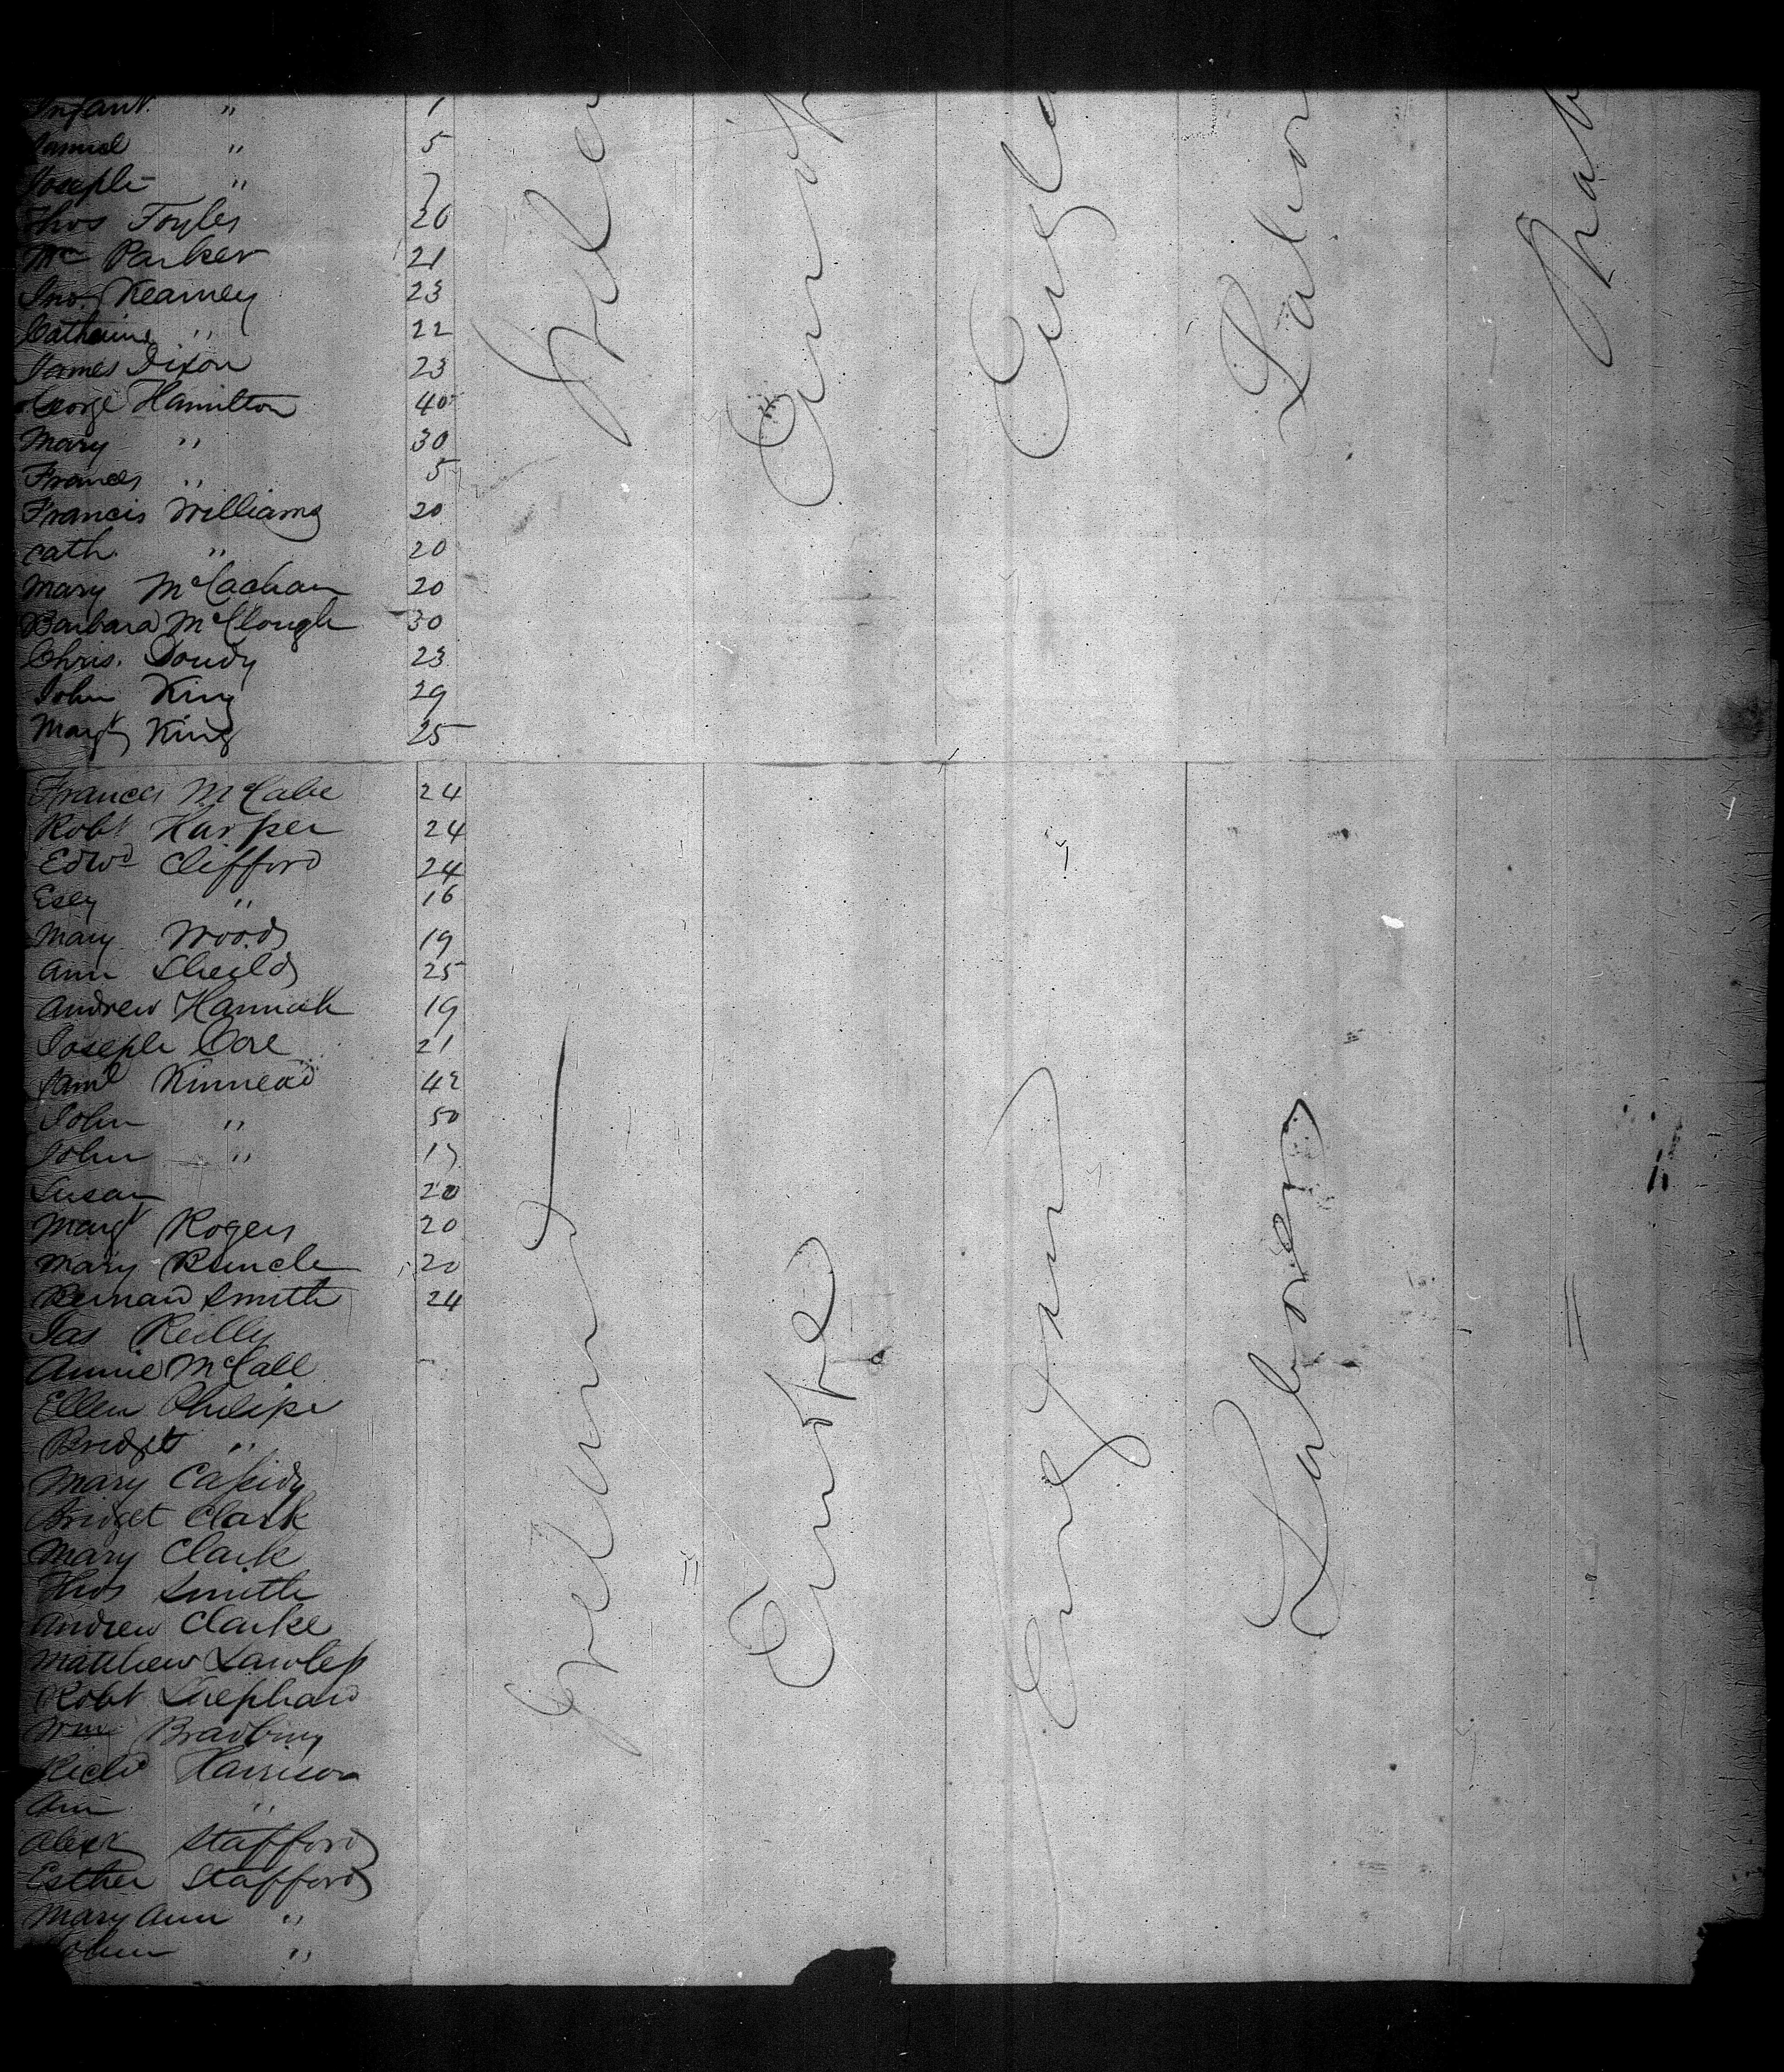 Infant. " 1
Samuel " 5
Joseph " 7
Thos Foyles 20
Mc Parker 21
Jno. Kearney 23
Catherine " 22
James Dixon 23
George Hamilton 40
Mary " 30
Frances " 5
Francis Williams 20
Cath. " 20
Mary McCachan 20
Barbara McClough 30
Chris. Doudy 23
John King 29
Margt King 25
Francis McCabe 24
Robt Harper 24
Edwd Clifford 24
Esey " 16
Mary Woods 19
Ann Sheilds 25
Andrew Hannah 19
Joseph Core 21
Saml Kinnead 42
John " 50
John " 17
Susan 20
Margt Rogers 20
Mary Runcle 20
Bernard Smith 24
Jas Reilly
Annie McCall
Ellen Philips
Bridget "
Mary Cassidy
Bridget Clark
Mary Clark
Thos Smith
Andrew Clarke
Matthew Lawless
Robt Shephard
Wm Bradbury
Richd Harrison
Ann "
Alexr Stafford
Esther Stafford
Mary Ann "
John "
Ireland
Laborers